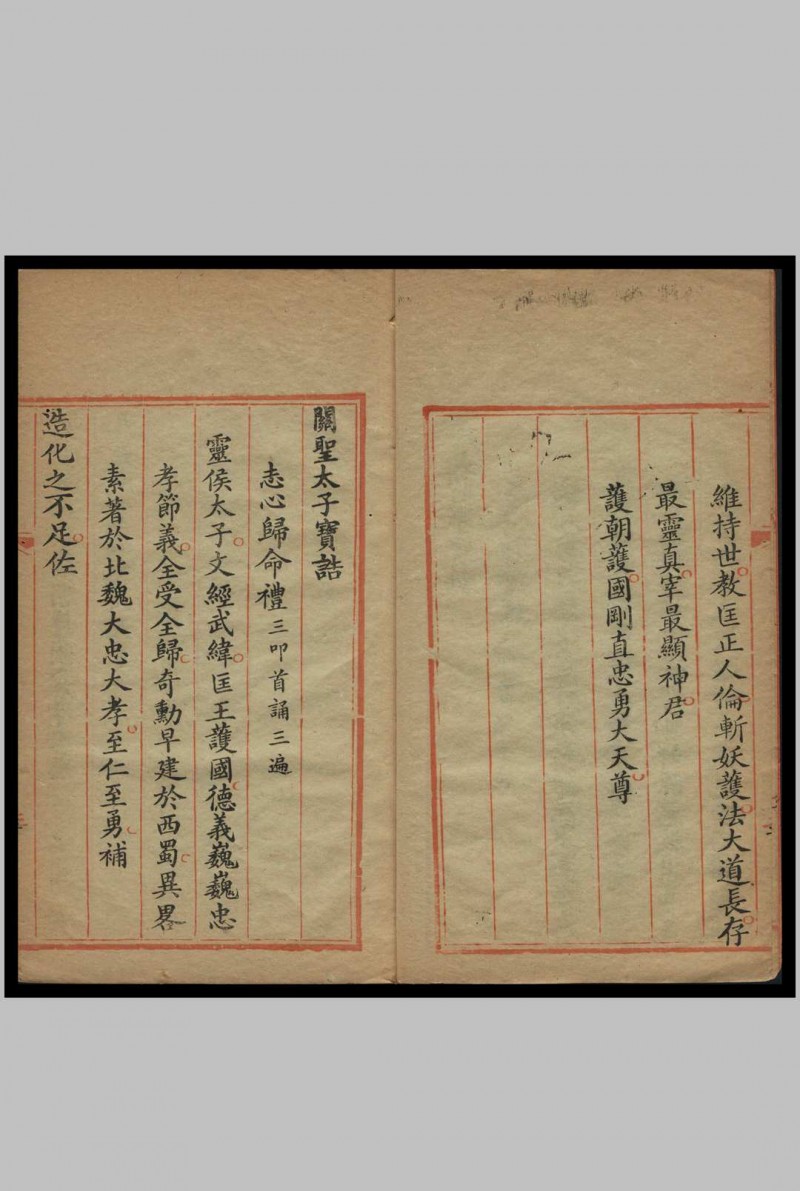 維持世教匡正人倫斬妖護法大道長存
最靈真宰最顯神君
護朝護國剛直忠勇大天尊
關聖太子寶誥
志心歸命禮三叩首誦三遍
靈侯太子文經武緯匡王護國德義巍巍忠
孝節義全受全歸奇勳早建於西蜀異畧
素著於北魏大忠大孝至仁至勇補
造化之不足佐